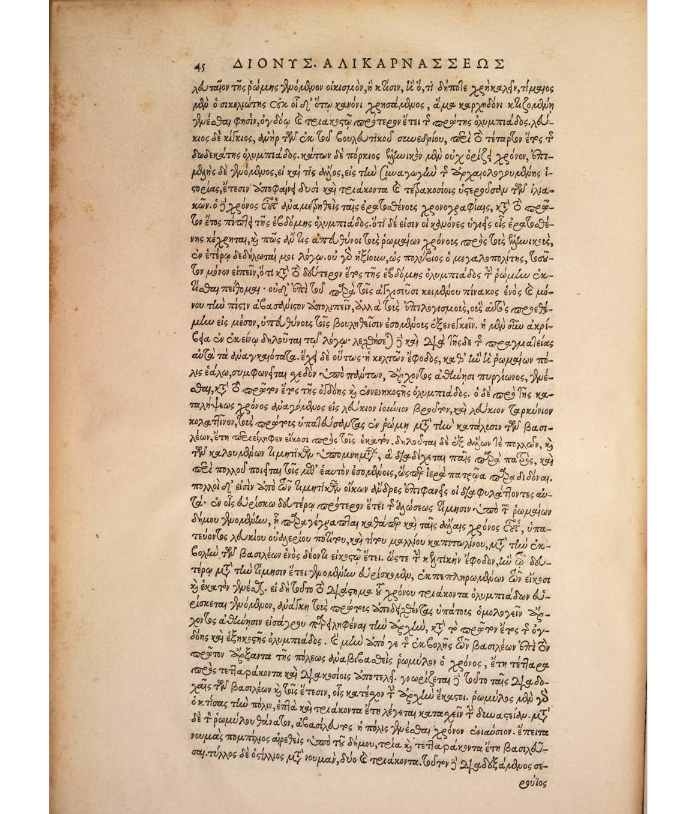 λευταῖον τῆς ῥώμης γενόμενον οἰκισμὸν, ἢ κτίσιν, ἢ ὅ, τι δήποτε χρὴ καλεῖν, τίμαιος
μὲν ὁ σικελιώτης οὐκ οἶδ' ὅτῳ κανόνι χρησάμενος, ἅμα καρχηδόνι κτιζομένῃ
γενέσθαι φησὶν, ὀγδόῳ καὶ τριακοστῷ πρότερον ἔτει τῆς πρώτης ὀλυμπιάδος. λεύ-
κιος δὲ κίγκιος, ἀνὴρ τῶν ἐκ τοῦ βουλευτικοῦ συνεδρίου, περὶ τὸ τέταρτον ἔτος τῆς
δωδεκάτης ὀλυμπιάδος. κάτων δὲ πόρκιος ἑλληνικὸν μὲν οὐχ ὁρίζει χρόνον, ἐπι-
μελὴς δὲ γενόμενος, εἰ καὶ τὶς ἄλλος, εἰς τὴν συναγωγὴν τῆς ἀρχαιολογουμένης ἱ-
στορίας, ἔτεσιν ἀποφαίνει δυσὶ καὶ τριάκοντα καὶ τετρακοσίοις ὑστεροῦσαν τῶν ἰλια-
κῶν. ὁ δὲ χρόνος οὗτος ἀναμετρηθεὶς ταῖς ἐρατοσθένους χρονογραφίαις, κατὰ τὸ πρῶ-
τον ἔτος πίπτει τῆς ἑβδόμης ὀλυμπιάδος. ὅτι δέ εἰσιν οἱ κανόνες ὑγιεῖς οἷς ἐρατοσθέ-
νης κέχρηται, καὶ πῶς ἄν τις ἀπευθύνοι τοὺς ῥωμαίων χρόνους πρὸς τοὺς ἑλληνικοὺς,
ἐν ἑτέρῳ δεδήλωταί μοι λόγῳ. οὐ γὰρ ἠξίουν, ὡς πολύβιος ὁ μεγαλοπολίτης, τοσοῦ-
τον μόνον εἰπεῖν, ὅτι κατὰ τὸ δεύτερον ἔτος τῆς ἑβδόμης ὀλυμπιάδος τὴν ῥώμην ἐκ-
τίσθαι πείθομαι. οὐδ' ἐπὶ τοῦ παρὰ τοῖς ἀγχιστεῦσι κειμένου πίνακος ἑνὸς καὶ μό-
νου τὴν πίστιν ἀβασάνιστον ὑπολιπεῖν, ἀλλὰ τοὺς ἐπιλογισμοὺς, οἷς αὐτὸς προσεθέ-
μην εἰς μέσον, ὑπευθύνους τοῖς βουληθεῖσιν ἐσομένους ἐξενεγκεῖν. ἡ μὲν οὖν ἀκρί-
βεια ἐν ἐκείνῳ δηλοῦται τῷ λόγῳ. λεχθήσεται δὲ καὶ διὰ τῆς δὲ τῆς πραγματείας
αὐτὰ τὰ ἀναγκαιότατα. ἔχει δὲ οὕτως· ἡ κελτῶν ἔφοδος, καθ' ἣν ἡ ῥωμαίων πό-
λις ἑάλω, συμφωνεῖται σχεδὸν ὑπὸ πάντων, ἄρχοντος ἀθήνησι πυργίωνος, γενέ-
σθαι, κατὰ τὸ πρῶτον ἔτος τῆς ὀγδόης καὶ ἐννενηκοστῆς ὀλυμπιάδος. ὁ δὲ πρὸ τῆς κα-
ταλήψεως χρόνος ἀναγόμενος εἰς λεύκιον ἰούνιον βροῦτον, καὶ λεύκιον ταρκύνιον
κολατῖνον, τοὺς πρώτους ὑπατεύσαντας ἐν ῥώμῃ μετὰ τὴν κατάλυσιν τῶν βασι-
λέων, ἔτη περιείληφεν εἴκοσι πρὸς τοῖς ἑκατόν. δηλοῦται δὲ ἐξ ἄλλων τε πολλῶν, καὶ
τῶν καλουμένων τιμητικῶν ὑπομνημάτων, ἃ διαδέχεται παῖς παρὰ πατρὸς, καὶ
περὶ πολλοῦ ποιεῖται τοῖς μεθ' ἑαυτὸν ἐσομένοις, ὥσπερ ἱερὰ πατρῷα παραδιδόναι.
πολλοὶ δ' εἰσὶν ἀπὸ τῶν τιμητικῶν οἴκων ἄνδρες ἐπιφανεῖς οἱ διαφυλάττοντες αὐ-
τά· ἐν οἷς εὑρίσκω δευτέρῳ πρότερον ἔτει τῆς ἁλώσεως τίμησιν ὑπὸ τοῦ ῥωμαίων
δήμου γενομένην, ᾗ παραγέγραπται καθάπερ καὶ ταῖς ἄλλαις χρόνος οὗτος, ὑπα-
τεύοντος λευκίου οὐαλερίου ποτίτου, καὶ τίτου μαλλίου καπιτωλίνου, μετὰ τὴν ἐκ-
βολὴν τῶν βασιλέων ἑνὸς δέοντι εἰκοστῷ ἔτει. ὥστε τὴν κελτικὴν ἔφοδον, ἣν τῷ δευ-
τέρῳ μετὰ τὴν τίμησιν ἔτει γενομένην εὑρίσκομεν, ἐκπεπληρωμένων τῶν εἴκοσι
καὶ ἑκατὸν γενέσθαι. εἰ δὴ τοῦτο τὸ διάστημα τοῦ χρόνου τριάκοντα ὀλυμπιάδων εὑ-
ρίσκεται γενόμενον, ἀνάγκη τοὺς πρώτους ἀποδειχθέντας ὑπάτους ὁμολογεῖν ἄρ-
χοντος ἀθήνησιν ἰσαγόρου παρειληφέναι τὴν ἀρχὴν, κατὰ τὸ πρῶτον ἔτος τῆς ὀγ-
δόης καὶ ἑξηκοστῆς ὀλυμπιάδος. καὶ μὴν ἀπό γε τῆς ἐκβολῆς τῶν βασιλέων ἐπὶ τὸν
πρῶτον ἄρξαντα τῆς πόλεως ἀναβιβασθεὶς ῥωμύλον ὁ χρόνος, ἔτη τέτταρα
πρὸς τετταράκοντα καὶ διακοσίοις ἀποτελεῖ. γνωρίζεται δὲ τοῦτο ταῖς διαδο-
χαῖς τῶν βασιλέων καὶ τοῖς ἔτεσιν, οἷς κατέσχον τὴν ἀρχὴν ἕκαστοι. ῥωμύλος μὲν γὰρ
ὁ κτίσας τὴν πόλιν, ἑπτὰ καὶ τριάκοντα ἔτη λέγεται κατασχεῖν τὴν δυναστείαν. μετὰ
δὲ τὸν ῥωμύλου θάνατον, ἀβασίλευτος ἡ πόλις γενέσθαι χρόνον ἐνιαύσιον. ἔπειτα
νουμᾶς πομπίλιος αἱρεθεὶς ὑπὸ τοῦ δήμου, τρία καὶ τετταράκοντα ἔτη βασιλεῦ-
σαι. τύλλος δὲ ὁστίλιος μετὰ νουμᾶν, δύο καὶ τριάκοντα. τοῦτον δὲ διαδεξάμενος σε-
ρούϊος
45 ΔΙΟΝΥΣ. ΑΛΙΚΑΡΝΑΣΣΕΩΣ